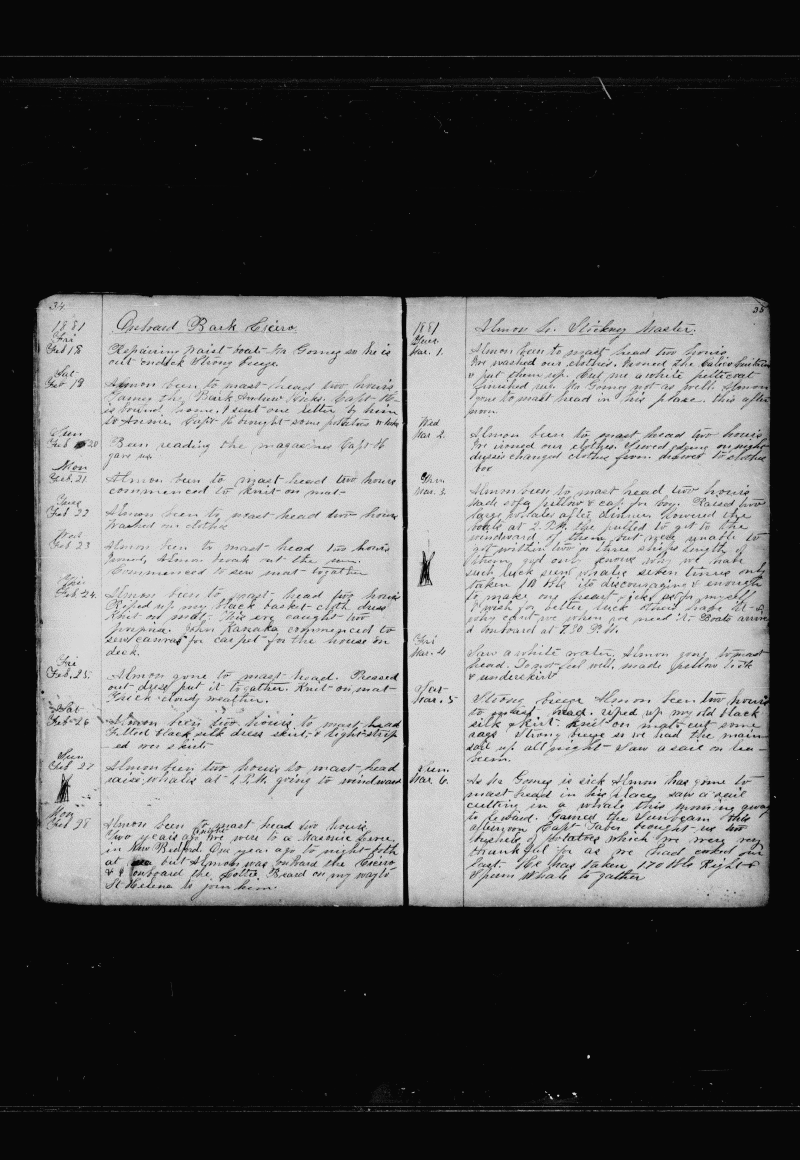 34
1881 Onboard Bark Cicero.
Fri
Feb 18 Repairing waist boats Mr Gomey so he is
out ondeck Strong breeze.
Sat
Feb. 19 Almon been to mast head two hours
Gamed the Bark Andrew Hicks. Capt H-
is bound home. I sent one letter by him
to Annie. Capt H brought some potatoes
Sun
Feb 20 Been reading the magazines Capt H
gave us.
Mon
Feb. 21 Almon been to mast head two hours
commenced to knit on mat-
Tues
Feb 22 Almon been to mast head two hours
Washed our clothes
Wed
Feb 23 Almon been to mast head two hours
Almon took at the sun.
Commenced to sew mat together
Feb. 24. Almon been to mast head two hours
Riped up my black basket cloth dress
Knit on mat. This eve caught two
John Kanaka commenced to
sew canvas for carpet for the house on
deck.
Fri
Feb. 25. Almon gone to mast-head. Pressed
out dress put it together. Knit on mat-
Thick cloudy weather.
Sat
Feb 26 Almon been two hours to mast head
Fitted black silk dress skirt- & light strip
-ed over skirt
Sun
Feb. 27 Almon been two hours to mast head
raise whales at 2 P.M. going to windward
Mon
Feb 28 Almon been to mast head two hours
Two years ago tonight we were to a Masonic
in New Bedford. One year ago to-night both
at sea but Almon was onboard the Cicero
& I onboard the Lottie Beard on my way to
St Helena to join him.
35
1881 Almon L. Stickney Master.
Tues
Mar. 1. Almon been to mast head two hours
We washed our clothes. Ironed the cabin curtains
& put them up. Cut me a white petticoat-
finished up. Mr Gomes not as well. Almon
gone to mast head in his place. this after
noon.
Wed
Mar 2. Almon been to mast head two hours
We ironed our clothes. Sewed edging on night
dresses changed clothes from drawer to clothes
box
Thurs
Mar. 3. Almon been to mast head two hours
Made sofa pillow & cap for boy. Raised two
large whales after dinner lowered the
boats at 2. P.M. We pulled to get to the
windward of them but were unable to
get within two or three ships length of
them
such luck seen whales seven times only
taken 10 bbls its discouraging & enough
to make one heart sick as for myself
I wish for better luck
why cant we when we need it. Boats arrive
d onboard at 7.30 P.M.
Fri
Mar. 4 Saw a white water, Almon gone to mast
head. Do not feel well, made pillow tick
& underskirt
Sat
Mar. 5 Strong breeze Almon been two hours
to mast head. riped up my old black
silk skirt. Knit on mat- cut some
rags Strong breeze so we had the main
sail up all night- Saw a sail on lee-
beam.
Sun.
Mar. 6. As Mr Gomes is sick Almon has gone to
mast head in his place, saw a sail
cutting in a whale this morning
to leward. Gamed the Sunbeam this
afternoon Capt- Taber brought us two
bushels of potatoes which we were very
thankful for as we hear eaten our
last. He has taken 170 bbls Right &
Sperm whale to gather